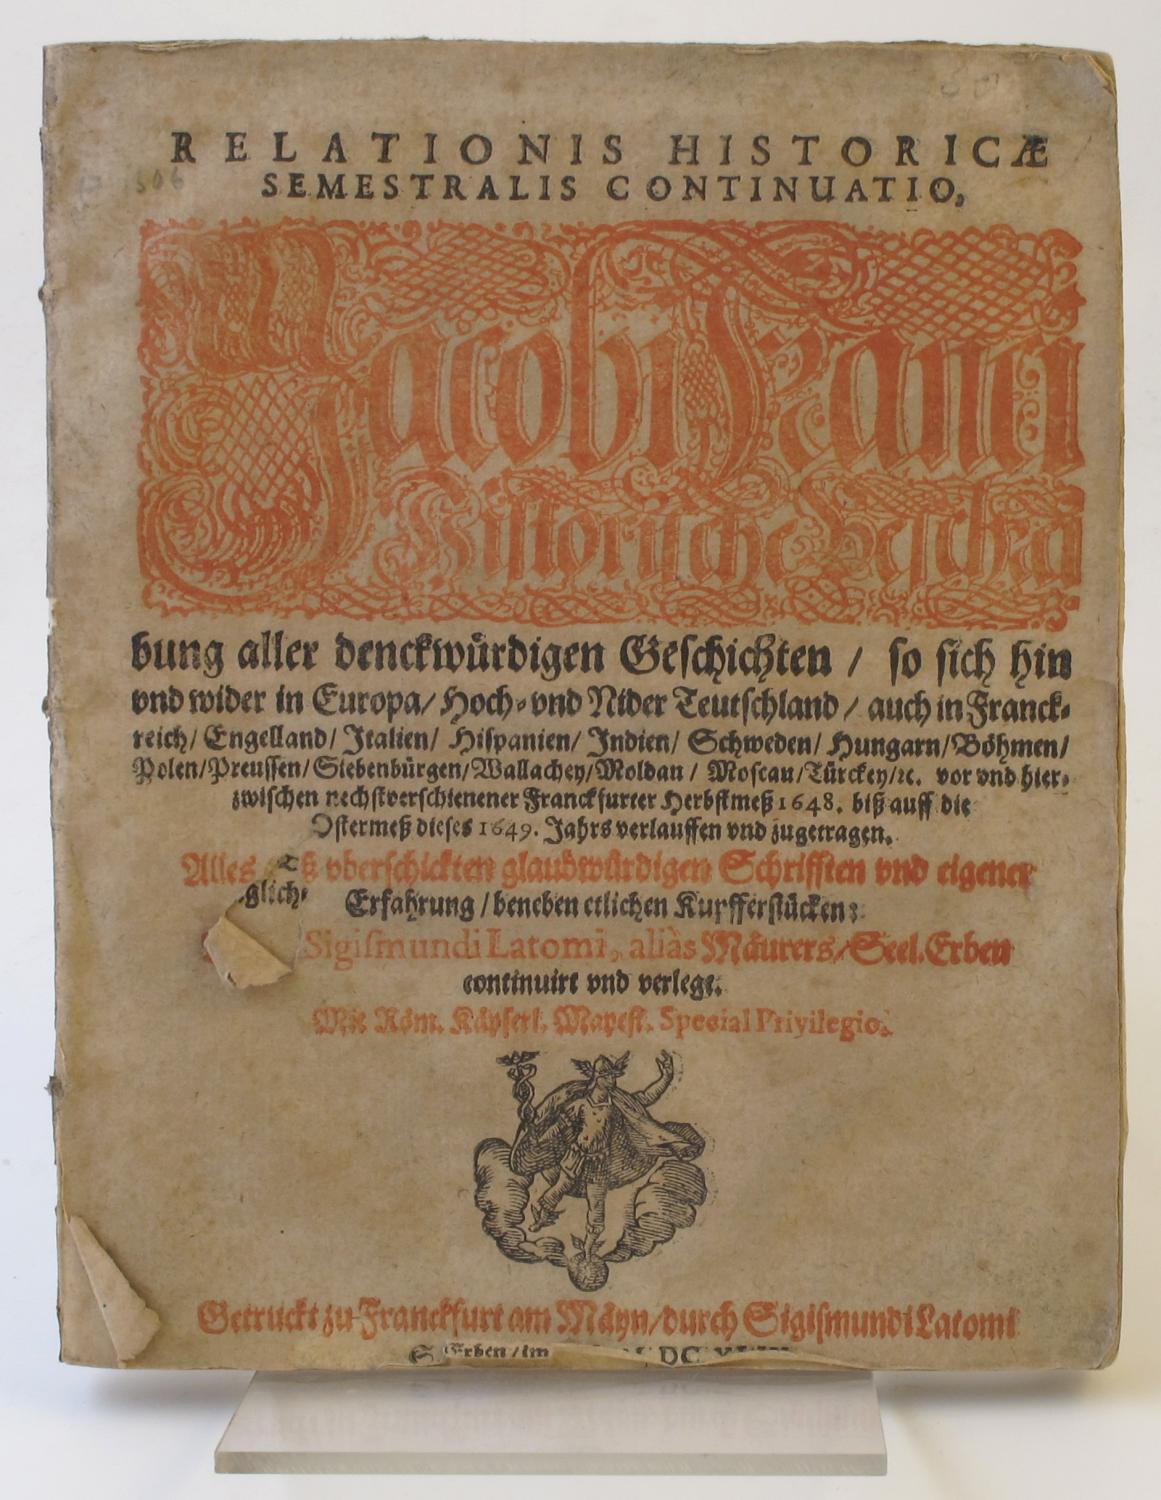 RELATIONIS HISTORICÆ
SEMESTRALIS CONTINUATIO,
Jacobi Franci
Historische Beschrei
bung aller denckwürdigen Geschichten / so sich hin
vnd wider in Europa/ Hoch- vnd Nider Teutschland / auch in Franck-
reich/ Engelland/ Italien/ Hispanien/ Indien/ Schweden/ Hungarn/ Böhmen/
Polen/Preussen/Siebenbürgen/Wallachey/Moldau / Moscau/Türckey/ꝛc. vor vnd hier-
zwischen nechstverschienener Franckfurter Herbstmeß 1648. biß auff die
Ostermeß dieses 1649. Jahrs verlauffen vnd zugetragen.
Alles vberschickten glaubwürdigen Schrifften vnd eigener
glich Erfahrung / beneben etlichen Kupfferstücken:
Sigismundi Latomi, aliàs Mäurers/ Seel. Erben
continuirt vnd verlegt.
Mit Röm. Käyserl. Mayest. Special Privilegio.
Getruckt zu Franckfurt am Mäyn/durch Sigismundi Latomi
S. Erben / im